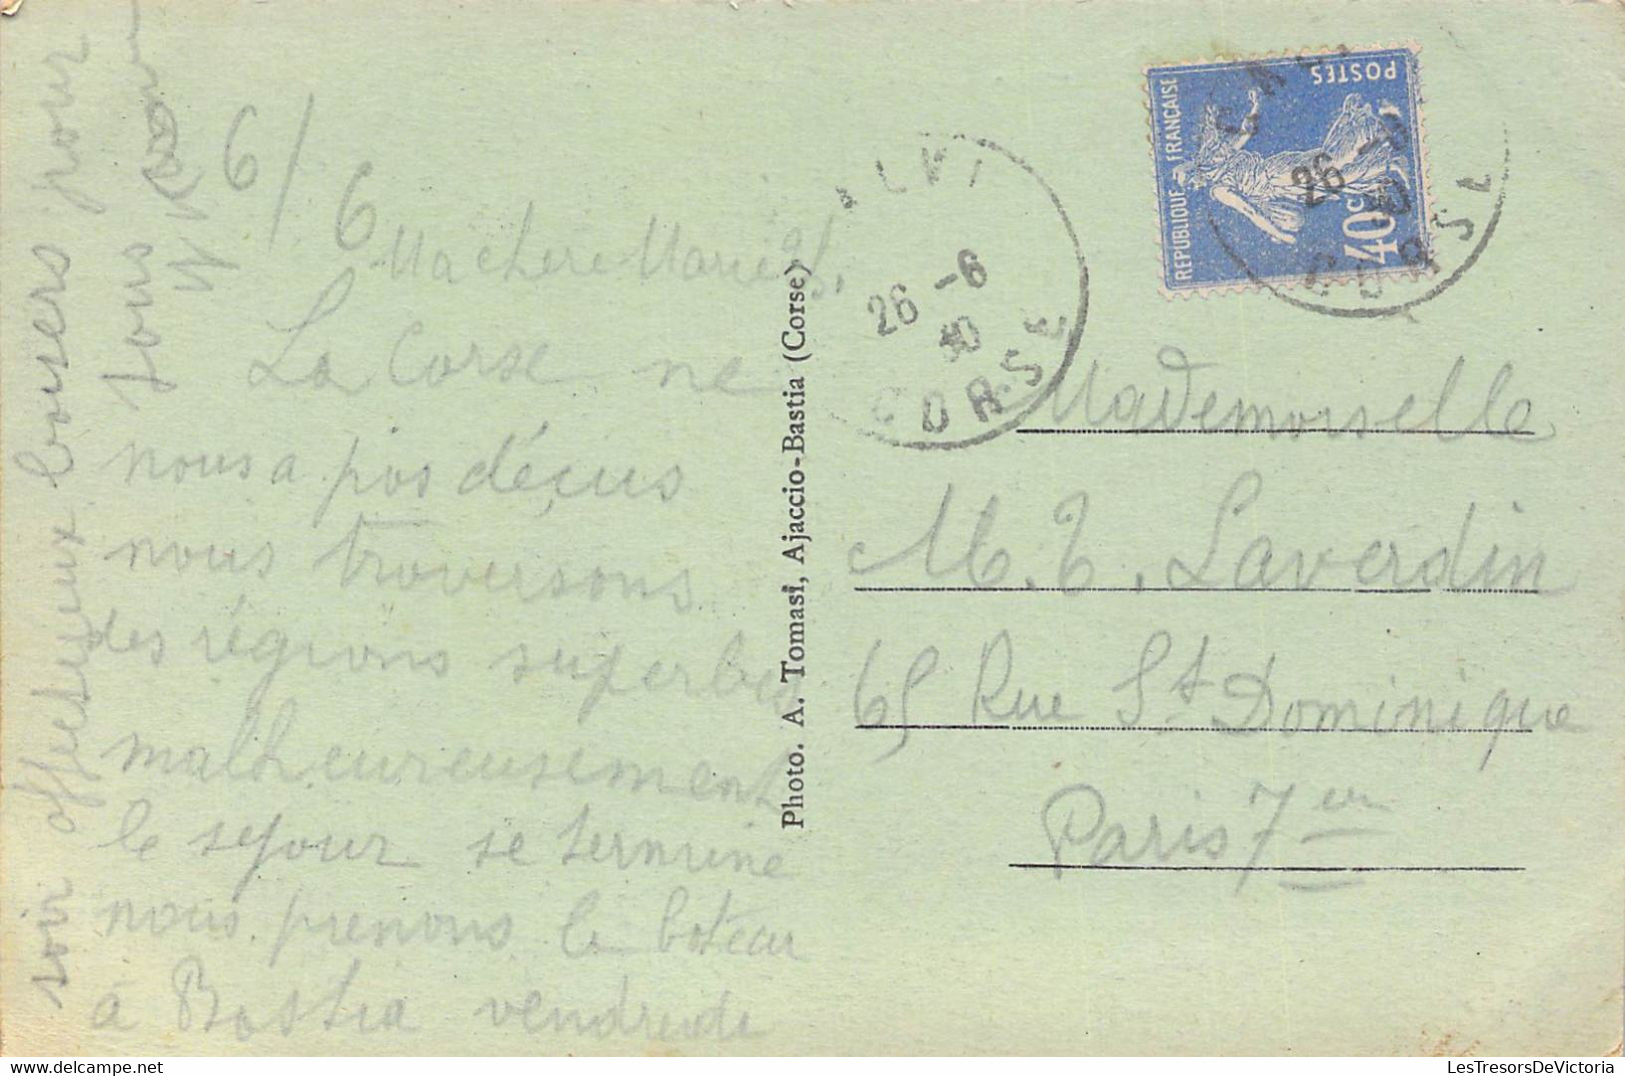 Ma chère Marie
La Corse ne
nous a pas déçus
nous traversons
des régions superbes
malheureusement
le sejour se termine
nous prenons le bateau
à Bastia vendredi
soir affectueux baisers pour
tous
Photo. A. Tomasi, Ajaccio-Bastia (Corse)
ALVI
26 -6
30
CORSE
REPUBLIQUE FRANÇAISE
POSTES
40c
26
CORSE
Mademoiselle
M. T. Laverdin
65 Rue St Dominique
Paris 7em
LesTresorsDeVictoria